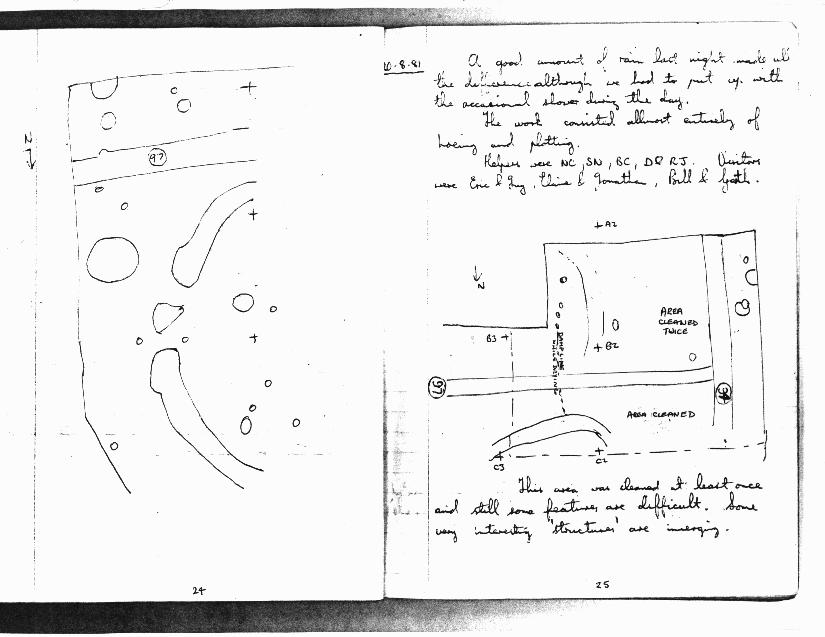 N
97
24
10.8.81
A good amount of rain last night made all
the difference although we had to put up with
the occasional shower during the day.
The work consisted allmost entirely of
hoeing and plotting.
Helpers were NC, SN, BC, D& RJ. Visitors
were Eric & Guy, Elaine & Jonathan, Bill & Gath.
+A2
N
AREA
CLEANED
TWICE
B3 +
+ B2
97
34
AREA CLEANED
C3
C2
This area was cleaned at least once
and still some features are difficult. Some
very interesting 'structures' are imerging.
25